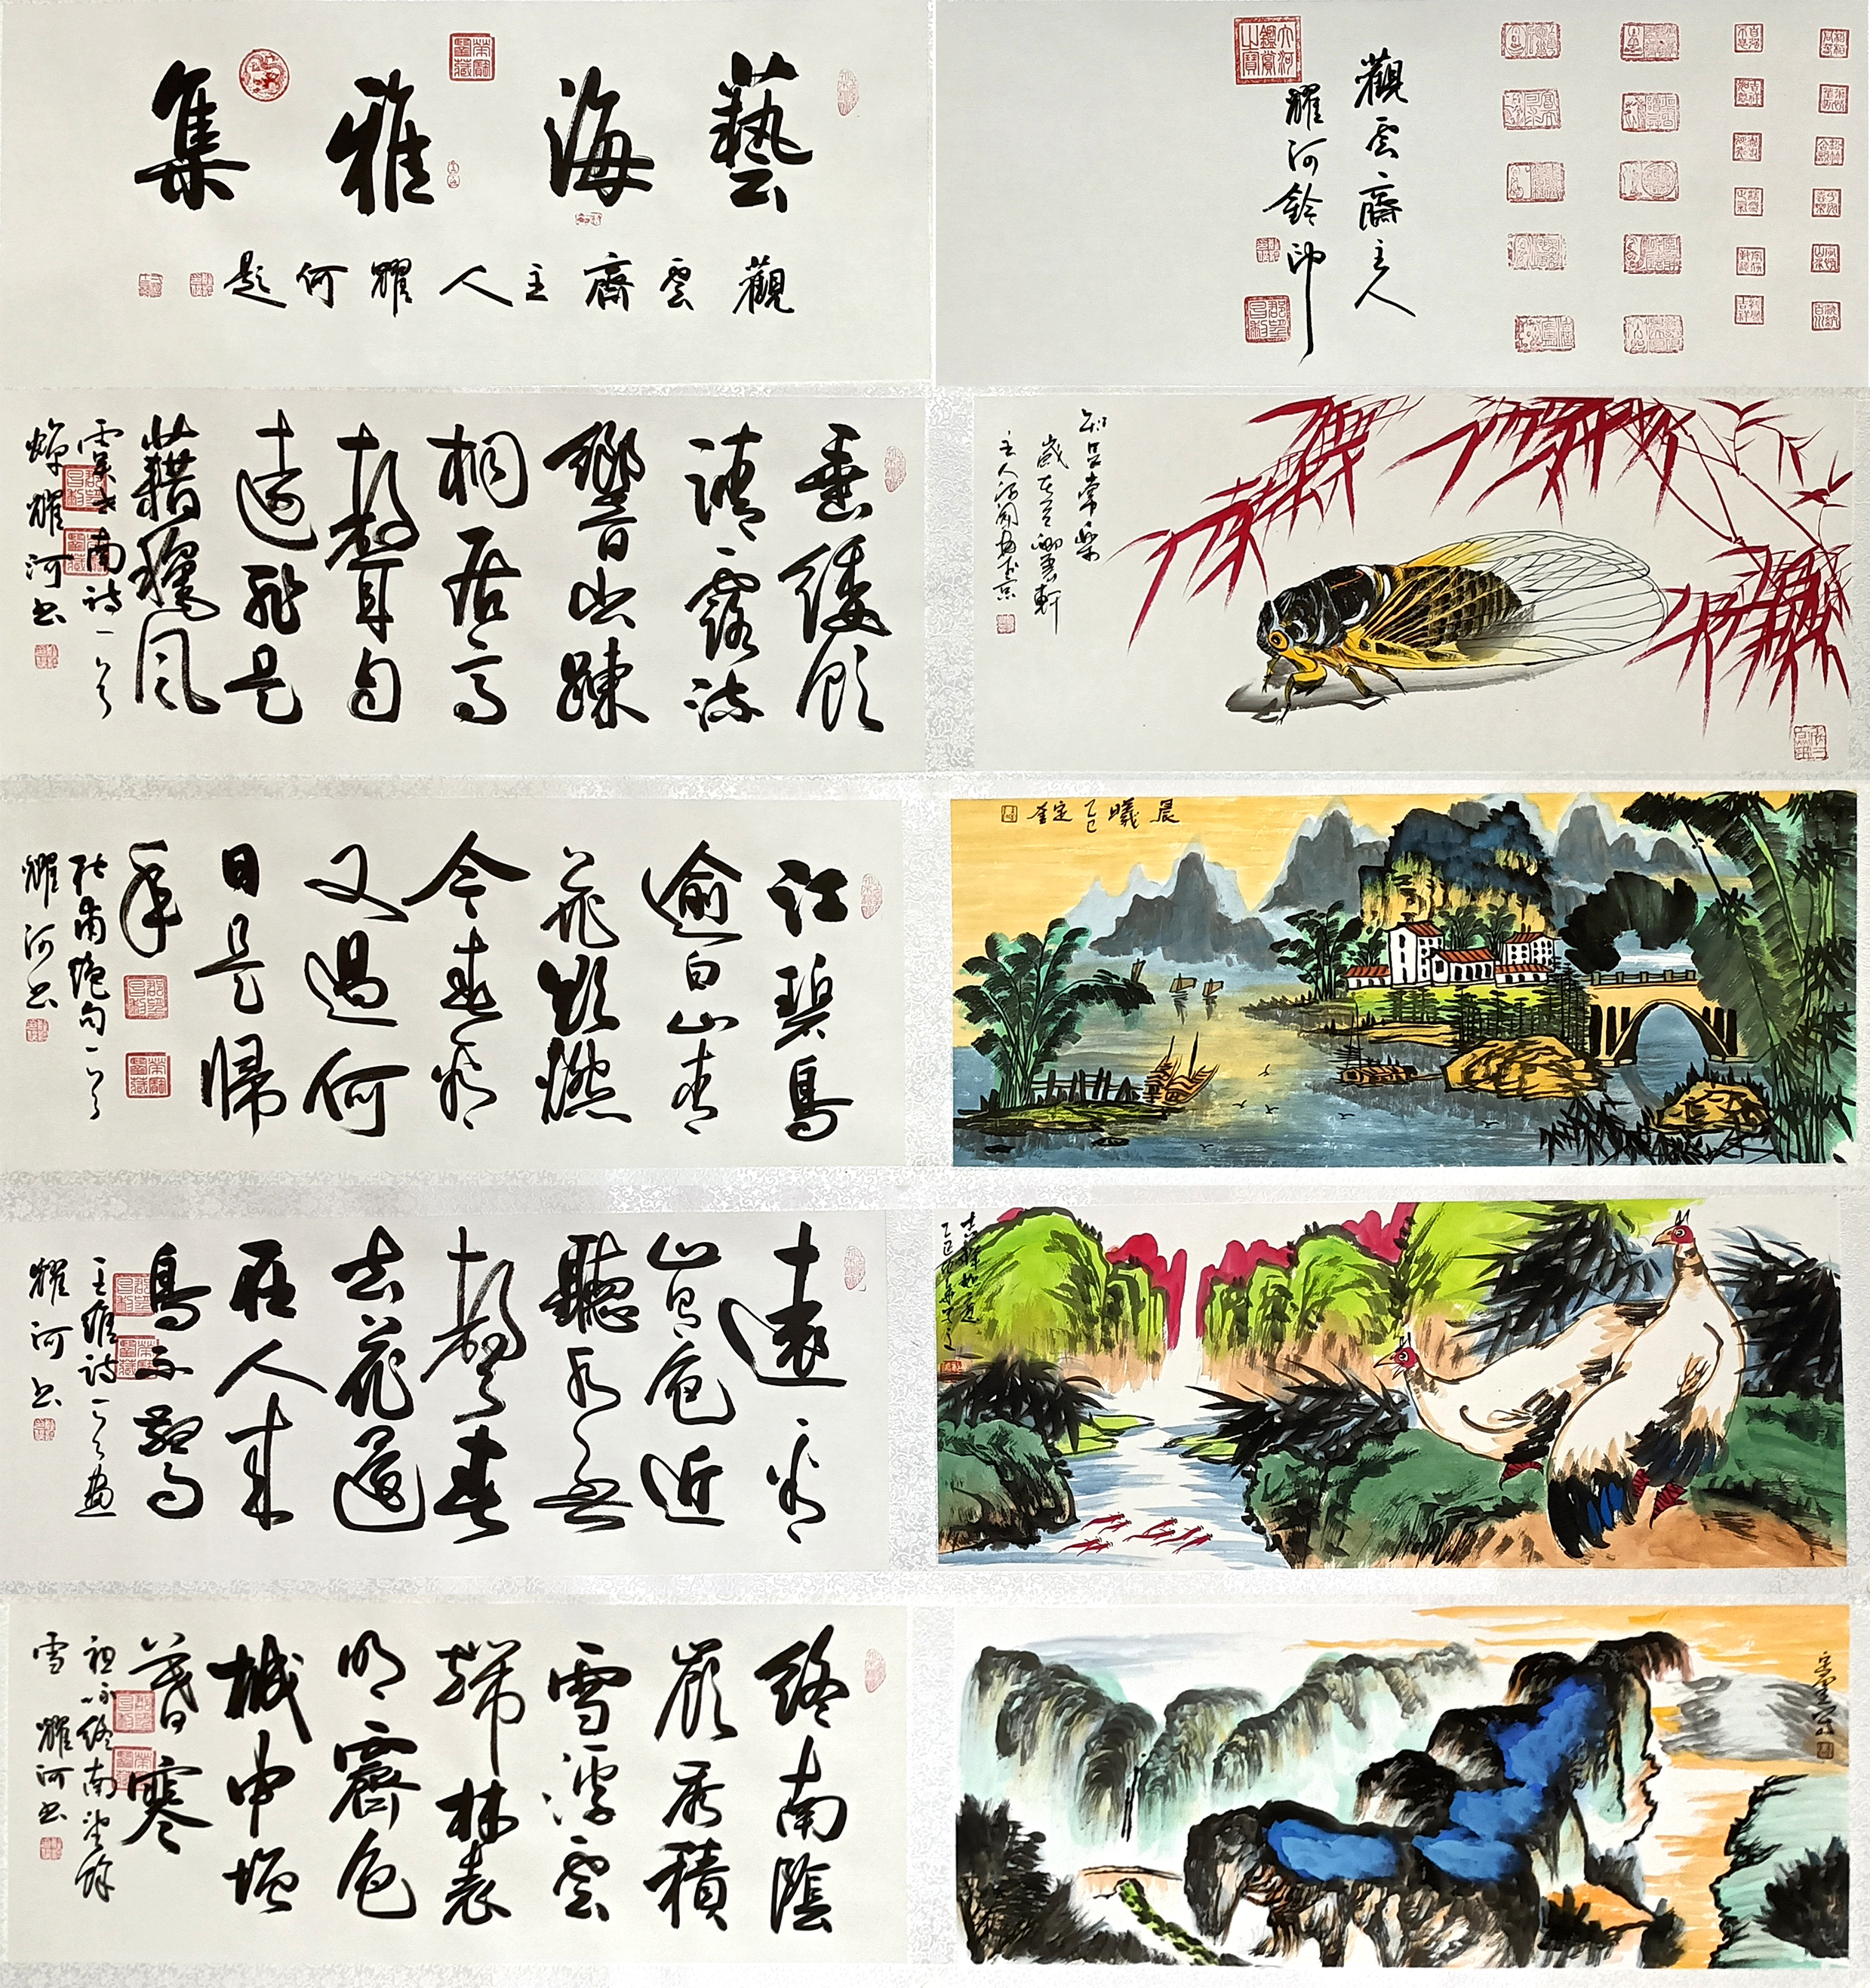 藝海雅集
觀雲齋主人耀何題
觀云齋主人
耀河鈐印
大河鑑賞之寶
垂緌飲
清露流
響出踈
桐居高
聲自
遠非是
藉穐風
虞世南詩一首
蟬耀河书
知足常樂
江碧鳥
逾白山青
花欲燃
今春看
又過何
日是歸
年
杜甫绝句一首
耀河书
晨曦乙巳
遠看
山有色近
聽水無
聲春
去花還
在人来
鳥不驚
王維詩一首畫
耀河书
吉祥如意
乙巳
終南陰
嶺秀積
雪浮雲
端林表
明霽色
城中增
暮寒
祖咏終南望餘
雪耀河书